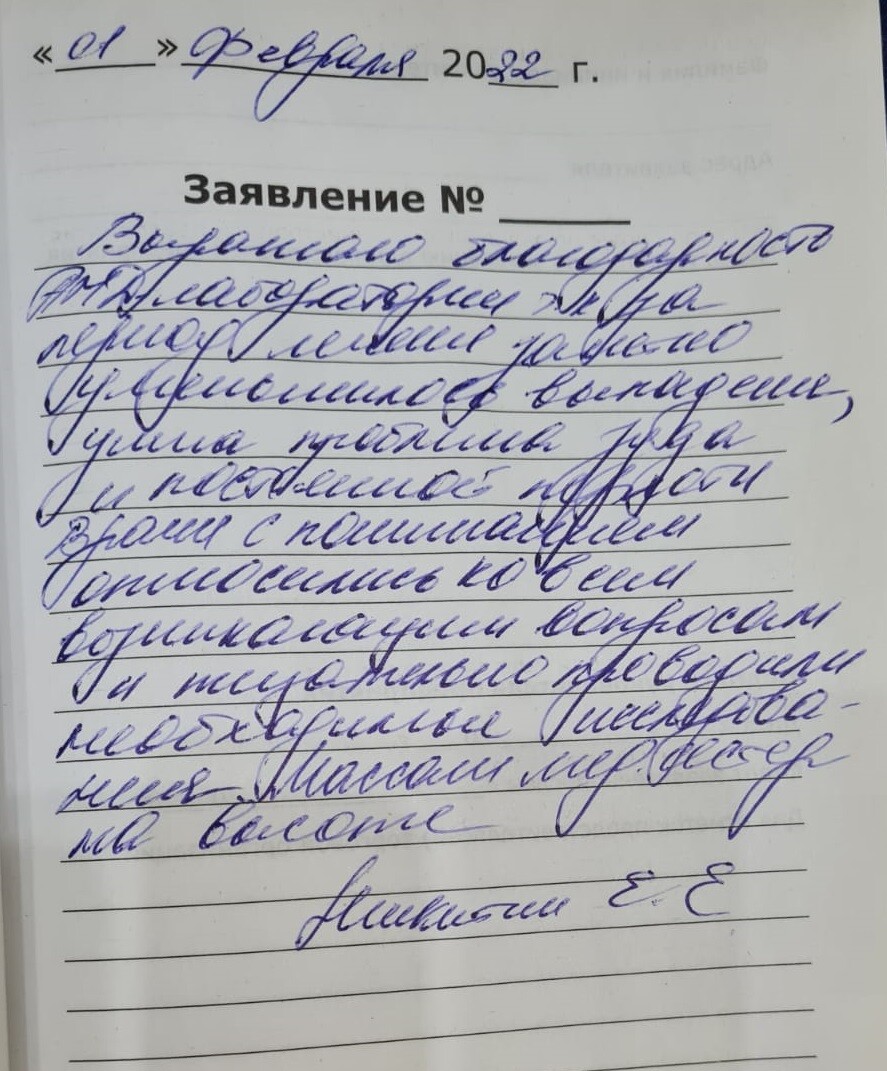 « 01 » Февраля 2022 г.
Заявление № ______
Выражаю благодарность
лаборатории за
период лечения заметно
уменьшилось выпадение,
ушла проблема зуда
и постоянной перхоти
Врачи с пониманием
относились ко всем
возникающим вопросам
и тщательно проводили
необходимые исследова-
ния. Массажи мед. сестер
на высоте
Никитин Е. Е